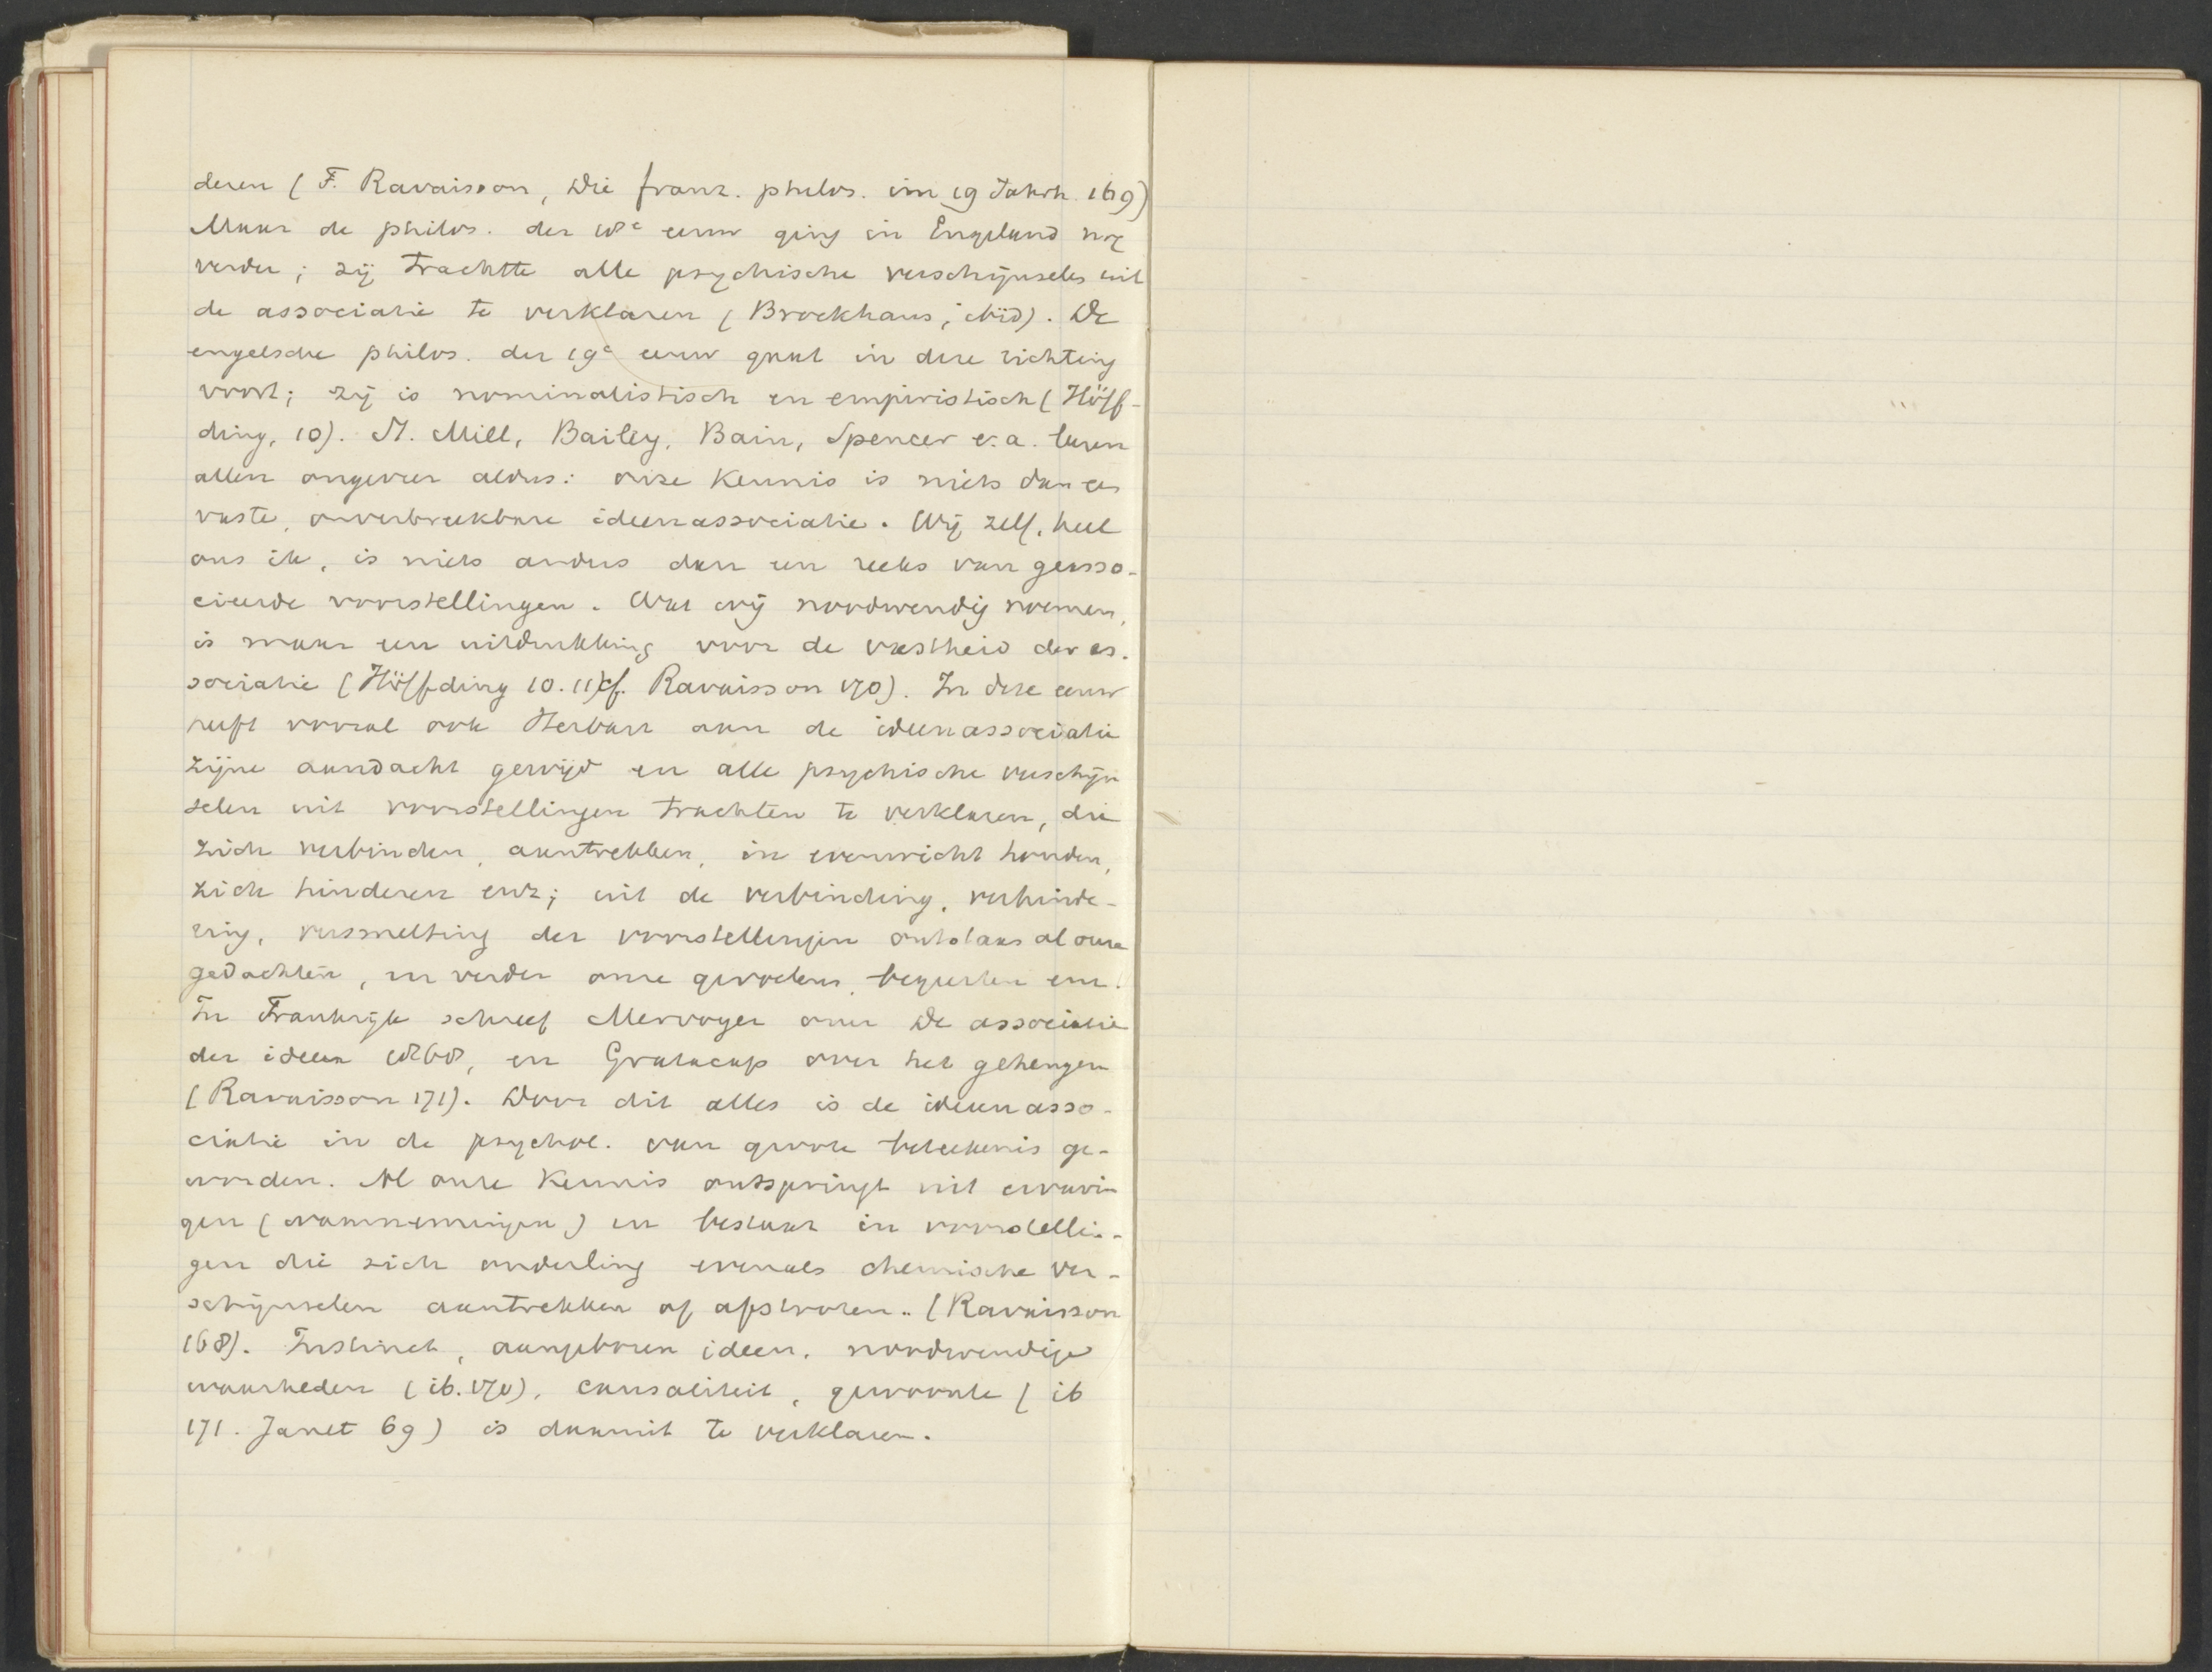 deren (F. Ravaisson, Die franz. philos. im 19 Jahrh. 169)
Maar de philos. der 18e eeuw ging in Engeland nog
verder; zij trachtte alle psychische verschijnselen uit
de associatie te verklaren (Brockhaus, ibid). De
engelsche philos. der 19e eeuw gaat in deze richting
voort; zij is nominalistisch en empiristisch (Höff-
ding, 10). St. Mill, Bailey, Bain, Spencer e.a. leeren
allen ongeveer aldus: onze kennis is niets dan een
vaste, onverbreekbare ideenassociatie. Wij zelf, heel
ons ik, is niets anders dan een reeks van geasso-
cieerde voorstellingen. Wat wij noodwendig noemen,
is maar een uitdrukking voor de vastheid der as-
sociatie (Höffding 10.11) cf. Ravaisson 170). In deze eeuw
heeft vooral ook Herbart aan de ideenassociatie
zijne aandacht gewijd en alle psychische verschijn
selen uit voorstellingen trachten te verklaren, die
zich verbinden, aantrekken, in evenwicht houden,
zich hinderen enz; uit de verbinding, verhinde-
ring, versmelting der voorstellingen ontstaan al onze
gedachten, en verder onze gevoelens, begeerten enz.
In Frankrijk schreef Mervoyer over De associatie
der ideen 1868, en Gratacap over het geheugen
(Ravaisson 171). Door dit alles is de ideenasso-
ciatie in de psychol. van groote beteekenis ge-
worden. Al onze kennis ontspringt uit ervarin
gen (waarnemingen) en bestaat in voorstellin-
gen die zich onderling evenals chemische ver-
schijnselen aantrekken of afstooten.. (Ravaisson
168). Instinct, aangeboren ideen, noodwendige
waarheden (ib. 170), causaliteit, gewoonte (ib
171. Janet 69) is daaruit te verklaren.